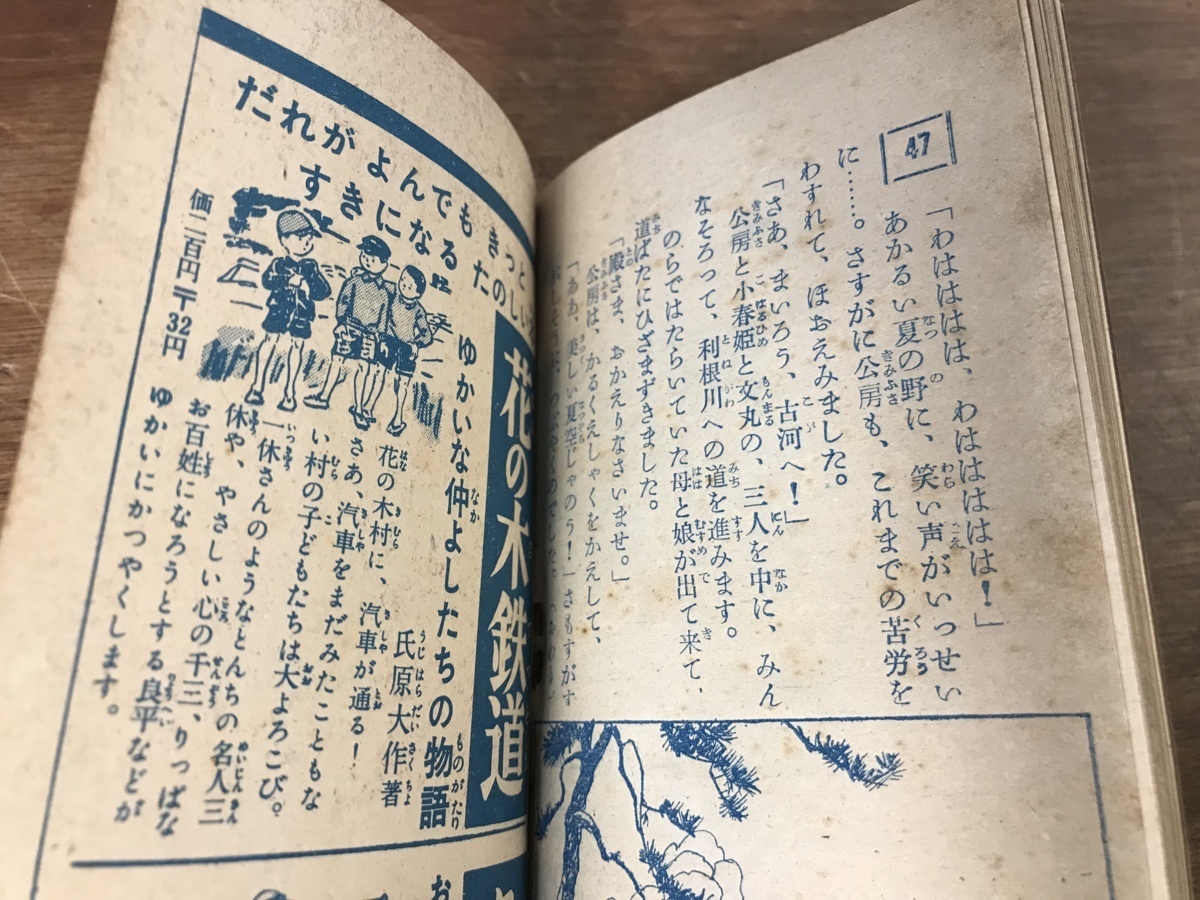 47
「わはははは、わはははは！」
あかるい夏の野に、笑い声がいっせい
に……。さすがに公房も、これまでの苦労を
わすれて、ほおえみました。
「さあ、まいろう、古河へ！」
公房と小春姫と文丸の、三人を中に、みん
なそろって、利根川への道を進みます。
のらではたらいていた母と娘が出て来て、
道ばたにひざまずきました。
「殿さま、おかえりなさいませ。」
公房は、かるくえしゃくをかえして、
「ああ、美しい夏空じゃのう！」さもすがす
だれがよんでも きっと
すきになる たのしい
花の木鉄道
ゆかいな仲よしたちの物語
氏原大作著
花の木村に、汽車が通る！
さあ、汽車をまだみたこともな
い村の子どもたちは大よろこび。
一休さんのようなとんちの名人三
休や、やさしい心の千三、りっぱな
お百姓になろうとする良平などが
ゆかいにかつやくします。
価二百円 〒32円
お